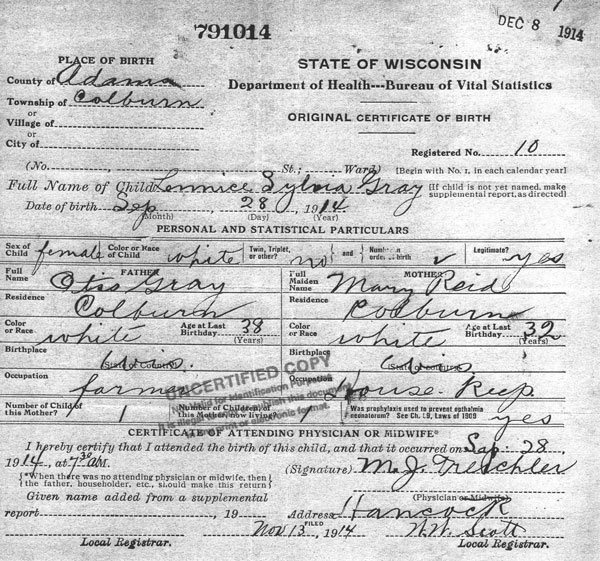 791014
DEC 8 1914
PLACE OF BIRTH
STATE OF WISCONSIN
County of Adams
Department of Health---Bureau of Vital Statistics
Township of Colburn
or
Village of
ORIGINAL CERTIFICATE OF BIRTH
or
City of
Registered No. 10
(No. St.; Ward) [Begin with No. 1, in each calendar year]
Full Name of Child Lennice Sylvia Gray [If child is not yet named, make supplemental report, as directed]
Date of birth Sep 28 1914
(Month) (Day) (Year)
PERSONAL AND STATISTICAL PARTICULARS
Sex of Child female Color or Race of Child white Twin, Triplet, or other? no and Number in order of birth Legitimate? yes
FATHER MOTHER
Full Name Otis Gray Full Maiden Name Mary Reid
Residence Colburn Residence Colburn
Color or Race white Age at Last Birthday 38 (Years) Color or Race white Age at Last Birthday 32 (Years)
Birthplace Wis. (State or Country) Birthplace Wis. (State or Country)
Occupation farmer Occupation House Keep
UNCERTIFIED COPY
Not valid for Identification Purposes
It is illegal to reproduce or publish this document
in print or electronic format.
Number of Child of this Mother? 1 Number of Children, of this Mother, now living? 1 Was prophylaxis used to prevent opthalmia neonatorum? See Ch. 19, Laws of 1909 yes
CERTIFICATE OF ATTENDING PHYSICIAN OR MIDWIFE*
I hereby certify that I attended the birth of this child, and that it occurred on Sep. 28,
1914, at 7 30 A M. (Signature) M. J. Treichler
[*When there was no attending physician or midwife, then the father, householder, etc., should make this return]
(Physician or Midwife)
Given name added from a supplemental
report , 19 Address Hancock
Nov 13 FILED 1914 W. W. Scott
Local Registrar. Local Registrar.